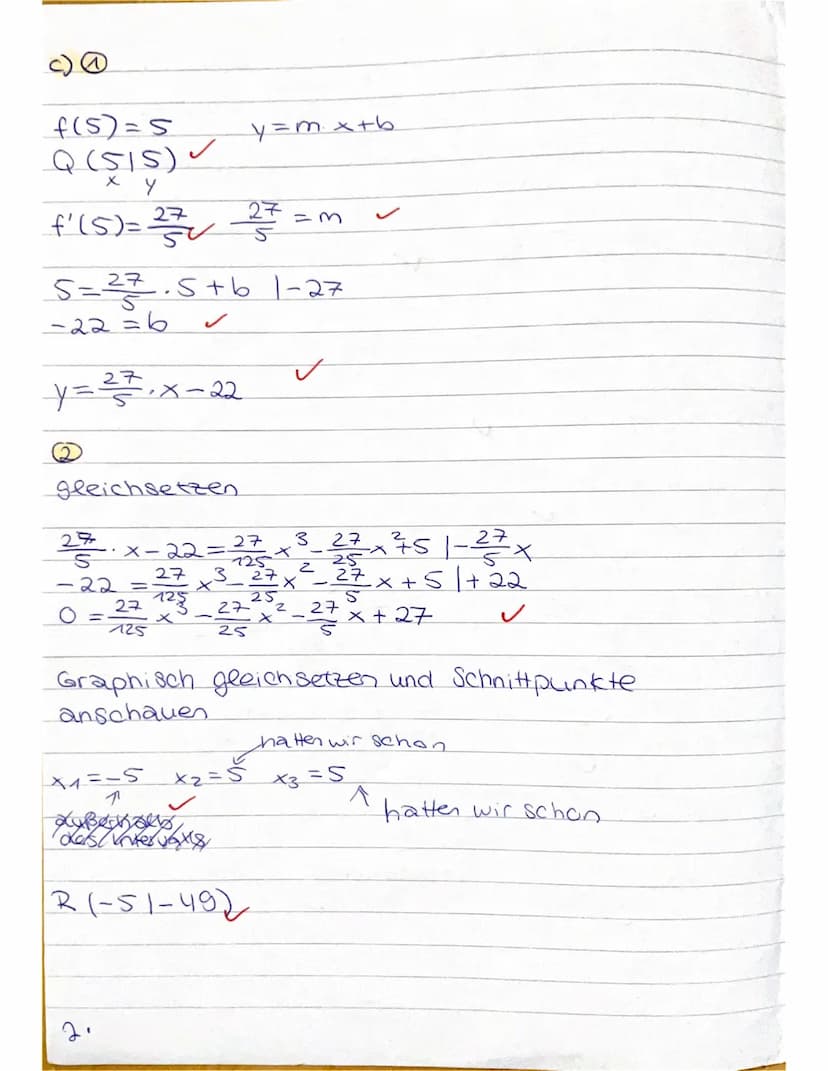 c) ①
f(5) = 5 y = m · x + b
Q (5|5) ✓
x y
f'(5) = 27/5 ✓ 27/5 = m ✓
5 = 27/5 · 5 + b |-27
-22 = b ✓
y = 27/5 · x - 22 ✓
②
gleichsetzen
27/5 · x - 22 = 27/125 x³ - 27/25 x² + 5 |- 27/5 x
-22 = 27/125 x³ - 27/25 x² - 27/5 x + 5 |+ 22
0 = 27/125 x³ - 27/25 x² - 27/5 x + 27 ✓
Graphisch gleichsetzen und Schnittpunkte
anschauen
hatten wir schon
x1 = -5 x2 = 5 x3 = 5
✓ hatten wir schon
außerhalb
des Intervalls
R (-5|-49) ✓
2.